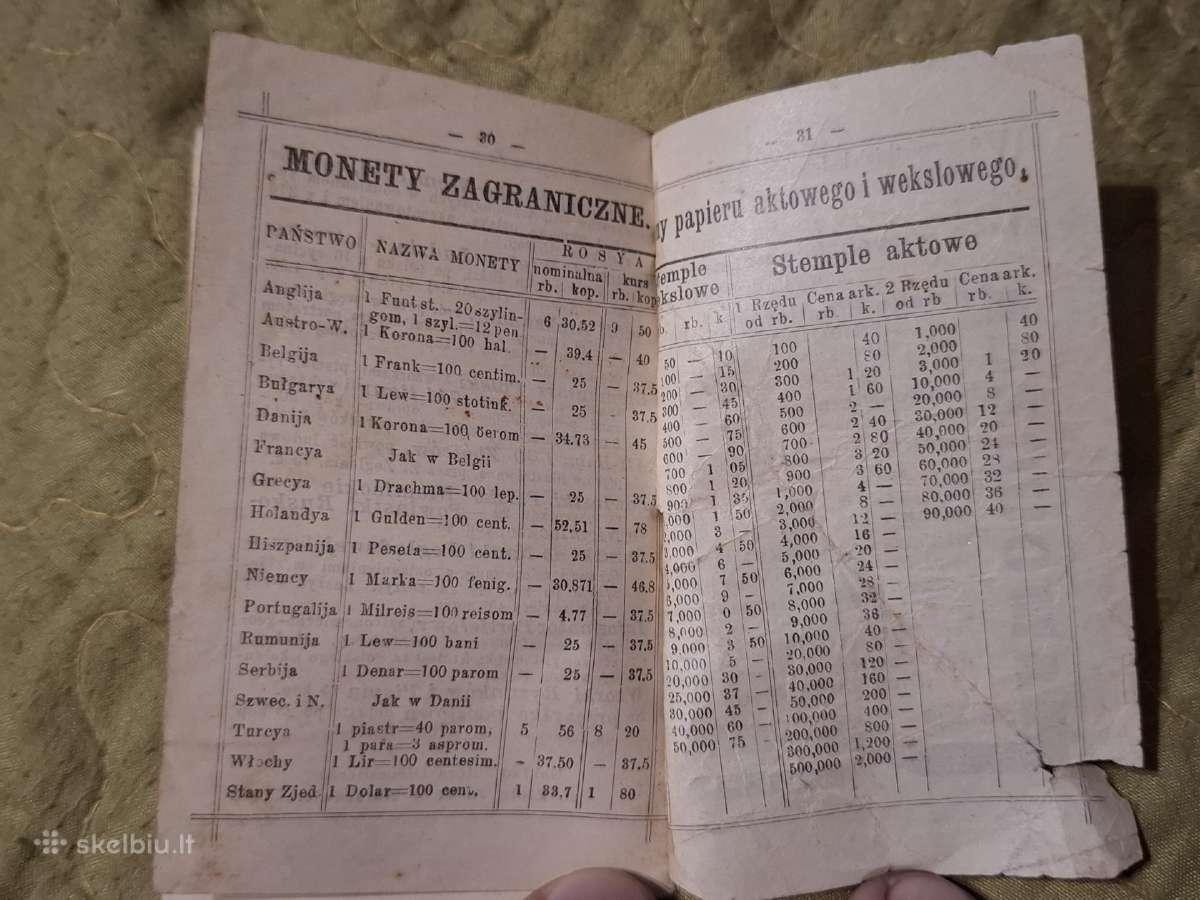 — 30 —
MONETY ZAGRANICZNE.
PAŃSTWO NAZWA MONETY ROSYA
nominalna kurs
rb. kop. rb. kop
Anglija 1 Funt st. = 20 szylin-
gom, 1 szyl.=12 pen 6 30.52 9 50
Austro-W. 1 Korona=100 hal. — 39.4 — 40
Belgija 1 Frank=100 centim. — 25 — 37.5
Bułgarya 1 Lew=100 stotink. — 25 37.5
Danija 1 Korona=100 oerom — 34.73 — 45
Francya Jak w Belgii
Grecya 1 Drachma=100 lep. — 25 — 37.5
Holandya 1 Gulden=100 cent. — 52,51 — 78
Hiszpanija 1 Peseta=100 cent. — 25 — 37.5
Niemcy 1 Marka=100 fenig. — 30,871 — 46.8
Portugalija 1 Milreis=100 reisom — 4.77 — 37.5
Rumunija 1 Lew=100 bani — 25 — 37.5
Serbija 1 Denar=100 parom — 25 — 37.5
Szwec. i N. Jak w Danii
Turcya 1 piastr=40 parom, 5 56 8 20
1 para=3 asprom.
Włochy 1 Lir=100 centesim. - 37.50 — 37.5
Stany Zjed 1 Dolar=100 cent. 1 33.7 1 80
— 31 —
ny papieru aktowego i wekslowego.
temple
kslowe
rb. k.
50 — 10
100 — 15
200 — 30
300 — 45
400 — 60
500 — 75
600 — 90
700 1 05
800 1 20
900 1 35
,000 1 50
2,000 3 —
3,000 4 50
4,000 6 —
5,000 7 50
6,000 9 —
7,000 0 50
8,000 2 —
9,000 3 50
10,000 5 —
20,000 30 —
25,000 37 —
30,000 45 —
40,000 60 —
50,000 75 -
Stemple aktowe
1 Rzędu Cena ark. 2 Rzędu Cena ark.
od rb. rb. k. od rb rb. k.
100 40 1,000 40
200 80 2,000 80
300 1 20 3,000 1 20
400 1 60 10,000 4 —
500 2 — 20,000 8 —
600 2 40 30,000 12 —
700 2 80 40,000 20 —
800 3 20 50,000 24 —
900 3 60 60,000 28 —
1,000 4 — 70,000 32 —
2,000 8 — 80,000 36 —
3,000 12 — 90,000 40 —
4,000 16 —
5,000 20 —
6,000 24 —
7,000 28 —
8,000 32 —
9,000 36 —
10,000 40 —
20,000 80 —
30,000 120 —
40,000 160 —
50,000 200 —
100,000 400 —
200,000 800 —
300,000 1,200 —
500,000 2,000 —
skelbiu.lt